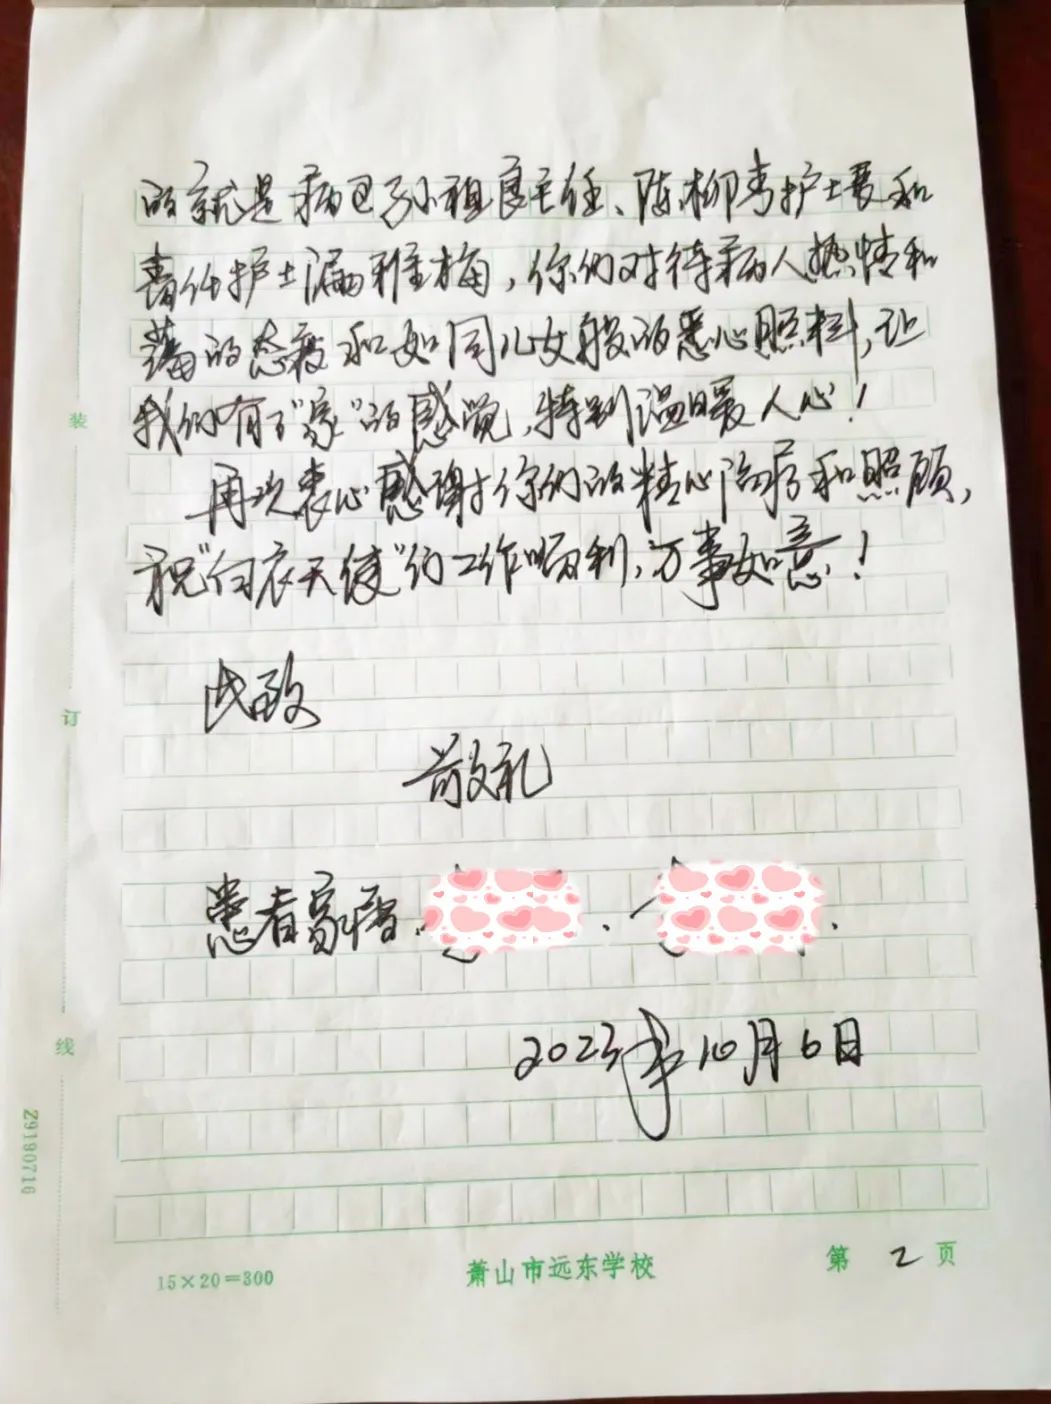 的就是病区孙祖良主任、陈柳青护士长和
责任护士漏雅梅，你们对待病人热情和
蔼的态度和如同儿女般的悉心照料，让
我们有了“家”的感觉，特别温暖人心！
再次衷心感谢你们的精心治疗和照顾，
祝“白衣天使”们工作顺利，万事如意！
此致
敬礼
患者家属
2023年10月6日
装
订
线
Z9190716
15×20=300
萧山市远东学校
第 2 页